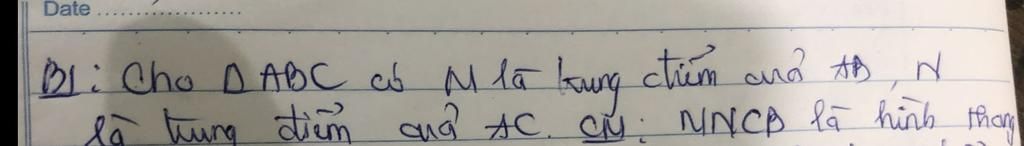 Date ....................
B1: Cho Δ ABC có M là trung điểm của AB, N
là trung điểm của AC. CM: MNCB là hình thang